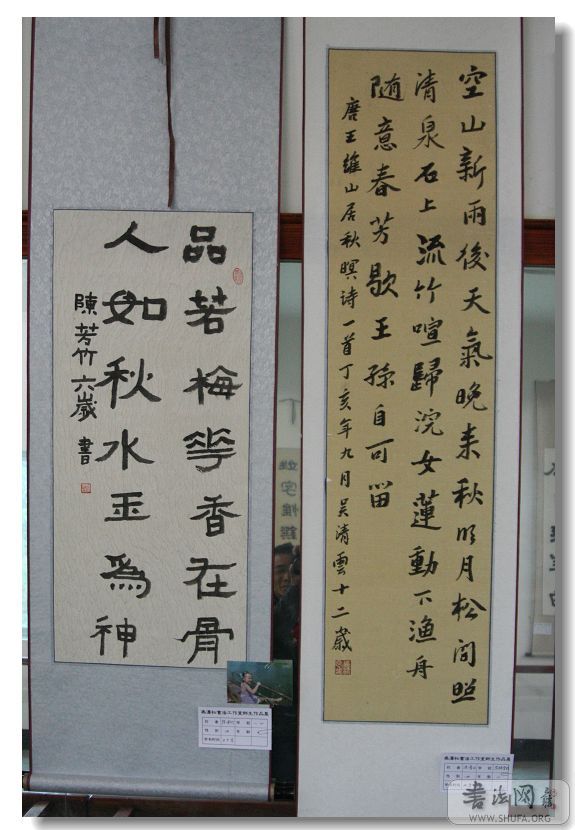 空山新雨後天氣晚来秋明月松间照
清泉石上流竹喧歸浣女蓮動下渔舟
随意春芳歇王孫自可留
唐王維山居秋暝诗一首丁亥年九月吴清雲十二歲
品若梅花香在骨
人如秋水玉為神
陳芳竹六歲書
書法工作室師生作品展
書法工作室師生作品展
书法网
WWW.SHUFA.ORG